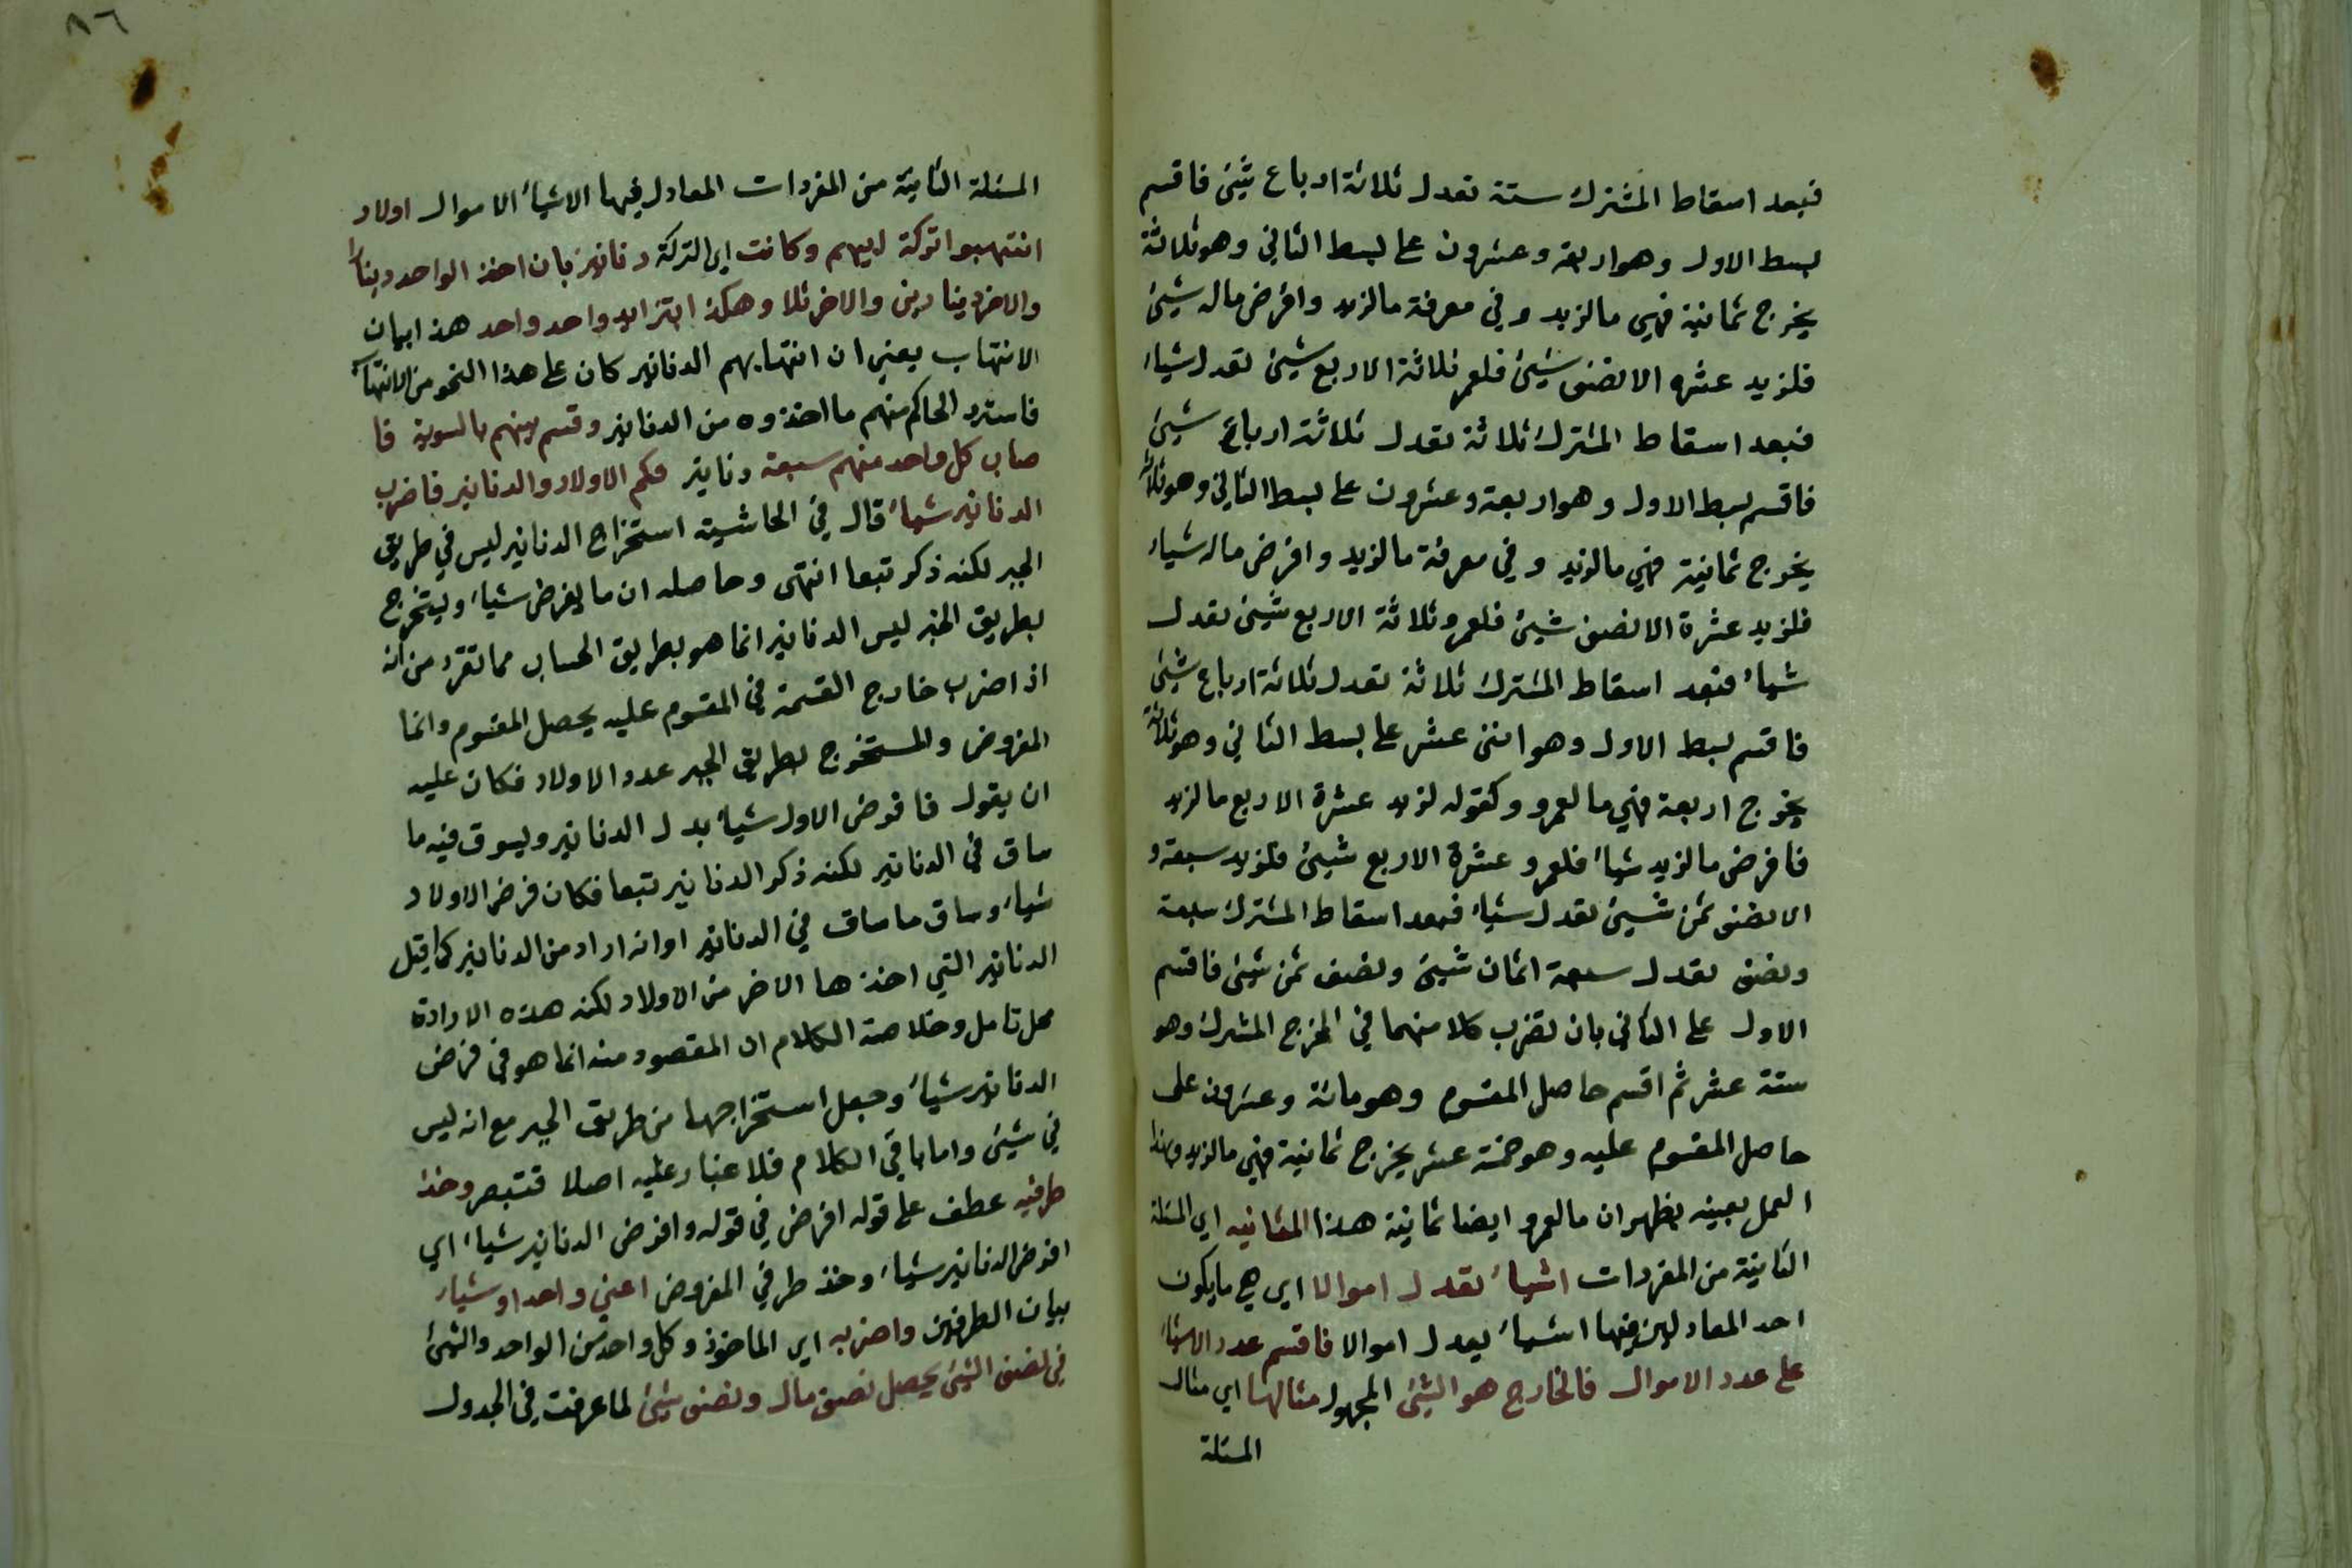 فبعد اسقاط المشترك ستة تعدل ثلاثة ارباع شئ فاقسم
بسط الاول وهو اربعة وعشرون على بسط الثاني وهو ثلاثة
يخرج ثمانية فهي ما لزيد وفي معرفة ما لزيد وافرض ماله شيئ
فلزيد عشره الا نصف شيئ فلعمرو ثلاثة الا ربع شيئ تعدل شيأ
فبعد اسقاط المشترك ثلاثة تعدل ثلاثة ارباع شيئ
فاقسم بسط الاول وهو اربعة وعشرون على بسط الثاني وهو ثلاثة
يخرج ثمانية فهي ما لزيد وفي معرفة ما لزيد وافرض ماله شيأ
فلزيد عشرة الا نصف شيئ فلعمرو ثلاثة الا ربع شيئ تعدل
شيأ فبعد اسقاط المشترك ثلاثة تعدل ثلاثة ارباع شيئ
فاقسم بسط الاول وهو اثنى عشر على بسط الثاني وهو ثلاثة
يخرج اربعة فهي ما لعمرو وكقوله لزيد عشرة الا ربع ما لزيد
فافرض ما لزيد شيأ فلعمرو عشرة الا ربع شيئ فلزيد سبعة و
الا نصف ثمن شيئ تعدل شيأ فبعد اسقاط المشترك سبعة
ونصف تعدل سبعة اثمان شيئ ونصف ثمن شيئ فاقسم
الاول على الثاني بان تضرب كلا منهما في المخرج المشترك وهو
ستة عشر ثم اقسم حاصل المقسوم وهو مائة وعشرون على
حاصل المقسوم عليه وهو خمسة عشر يخرج ثمانية فهي ما لزيد وبهذا
العمل بعينه يظهر ان ما لعمرو ايضا ثمانية هذا الثانيه اي المسئلة
الثانية من المفردات اشيأ تعدل اموالا اي هي ما يكون
احد المعادلين فيها اشيأ يعدل اموالا فاقسم عدد الاشيأ
على عدد الاموال فالخارج هو الشئ المجهول مثالها اي مثال
المسئلة
٨٦
المسئلة الثانية من المفردات المعادل فيها الاشيأ الاموال اولاد
انتهبوا تركة ابيهم وكانت اي التركة دنانير بان اخذ الواحد دينارا
والاخر دينارين والاخر ثلا وهكذا بتزايد واحد واحد هذا بيان
الانتهاب يعني ان انتهابهم الدنانير كان على هذا النحو من الانتهاب
فاسترد الحاكم منهم ما اخذوه من الدنانير وقسم بينهم بالسوية فا
صاب كل واحد منهم سبعة دنانير فكم الاولاد والدنانير فاضرب
الدنانير شيأ قال في الحاشية استخراج الدنانير ليس في طريق
الجبر لكنه ذكر تبعا انتهى وحاصله ان ما يفرض شيأ ويستخرج
بطريق الجبر ليس الدنانير انما هو بطريق الحساب مما تقرر من انه
اذا ضرب خارج القسمة في المقسوم عليه يحصل المقسوم وانما
المفروض والمستخرج بطريق الجبر عدد الاولاد فكان عليه
ان يقول فافرض الاول شيأ بدل الدنانير ويسوق فيه ما
ساق في الدنانير لكنه ذكر الدنانير تبعا فكان فرض الاولاد
شيأ وساق ما ساق في الدنانير او انه اراد من الدنانير كما قيل
الدنانير التي اخذها الاخر من الاولاد لكنه هذه الارادة
محل تامل وخلاصة الكلام ان المقصود منه انما هو في فرض
الدنانير شيأ وجعل استخراجها من طريق الجبر مع انه ليس
في شيئ واما باقي الكلام فلا غبار عليه اصلا فتبصر وخذ
طرفيه عطف على قوله افرض في قوله وافرض الدنانير شيأ اي
افرض الدنانير شيأ وخذ طرفي المفروض اعني واحدا وشيأ
بيان الطرفين واضربه اي الماخوذ وكل واحد من الواحد والشئ
في نصف الشئ يحصل نصف مال ونصف شئ لما عرفت في الجدول